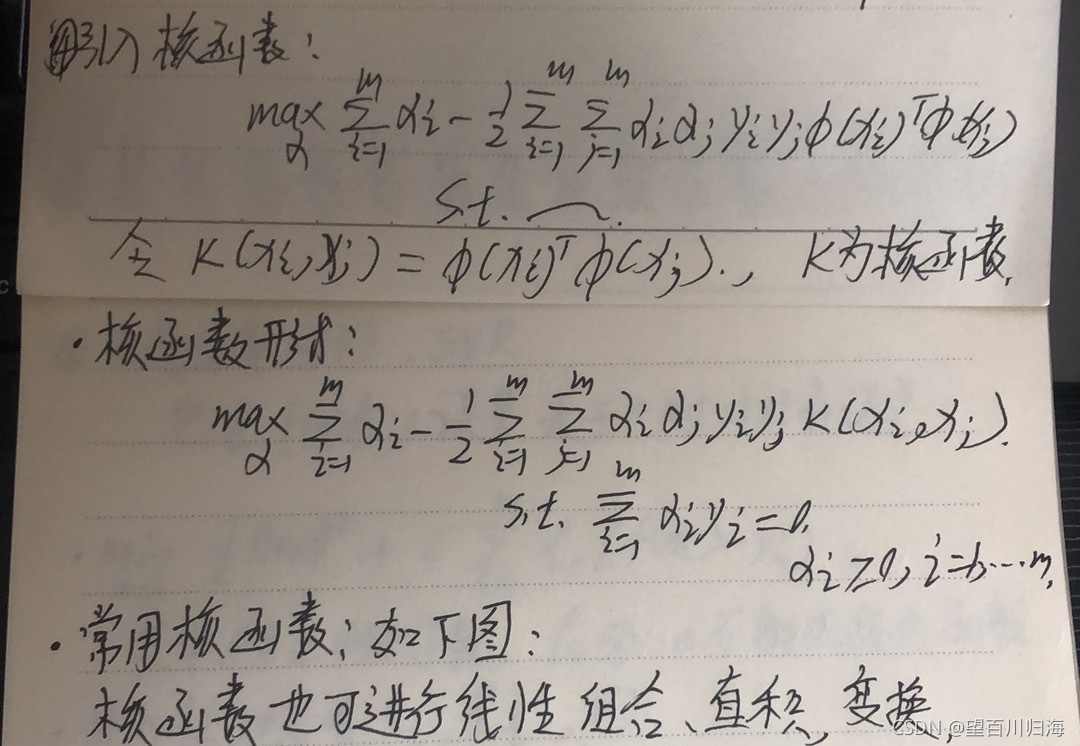 引入核函数:
max_α Σ_{i=1}^{m} α_i - 1/2 Σ_{i=1}^{m} Σ_{j=1}^{m} α_i α_j y_i y_j φ(x_i)^T φ(x_j)
s.t. ⁓.
令 K(x_i, x_j) = φ(x_i)^T φ(x_j)., K为核函数.
· 核函数形式:
max_α Σ_{i=1}^{m} α_i - 1/2 Σ_{i=1}^{m} Σ_{j=1}^{m} α_i α_j y_i y_j K(x_i, x_j).
s.t. Σ_{i=1}^{m} α_i y_i = 0.
α_i ≥ 0, i=1,…m.
· 常用核函数: 如下图:
核函数也可进行线性组合、直积、变换.
CSDN @望百川归海